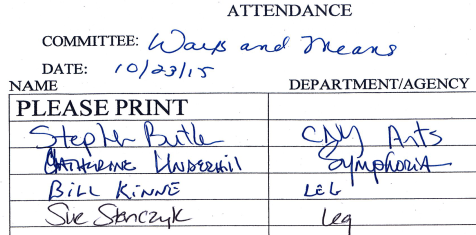 ATTENDANCE
COMMITTEE: Ways and Means
DATE: 10/23/15
NAME DEPARTMENT/AGENCY
PLEASE PRINT
Stephen Butler CNY Arts
CATHERINE UNDERHILL SYMPHORIA
BILL KINNE LEG
Sue Stanczyk Leg